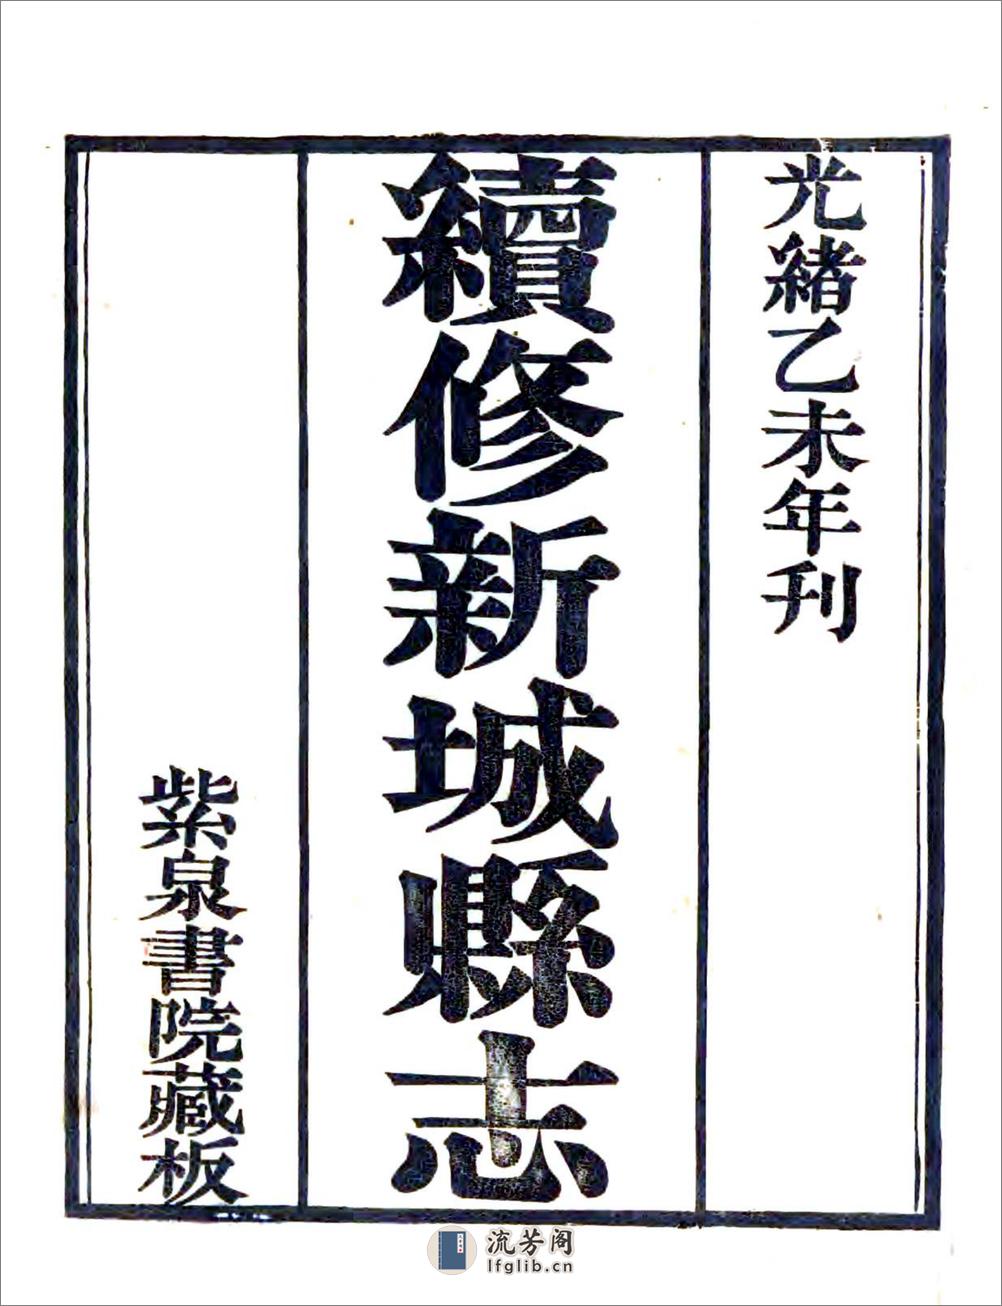 光緒乙未年刊
續修新城縣志
紫泉書院藏板
流芳阁
lfglib.cn